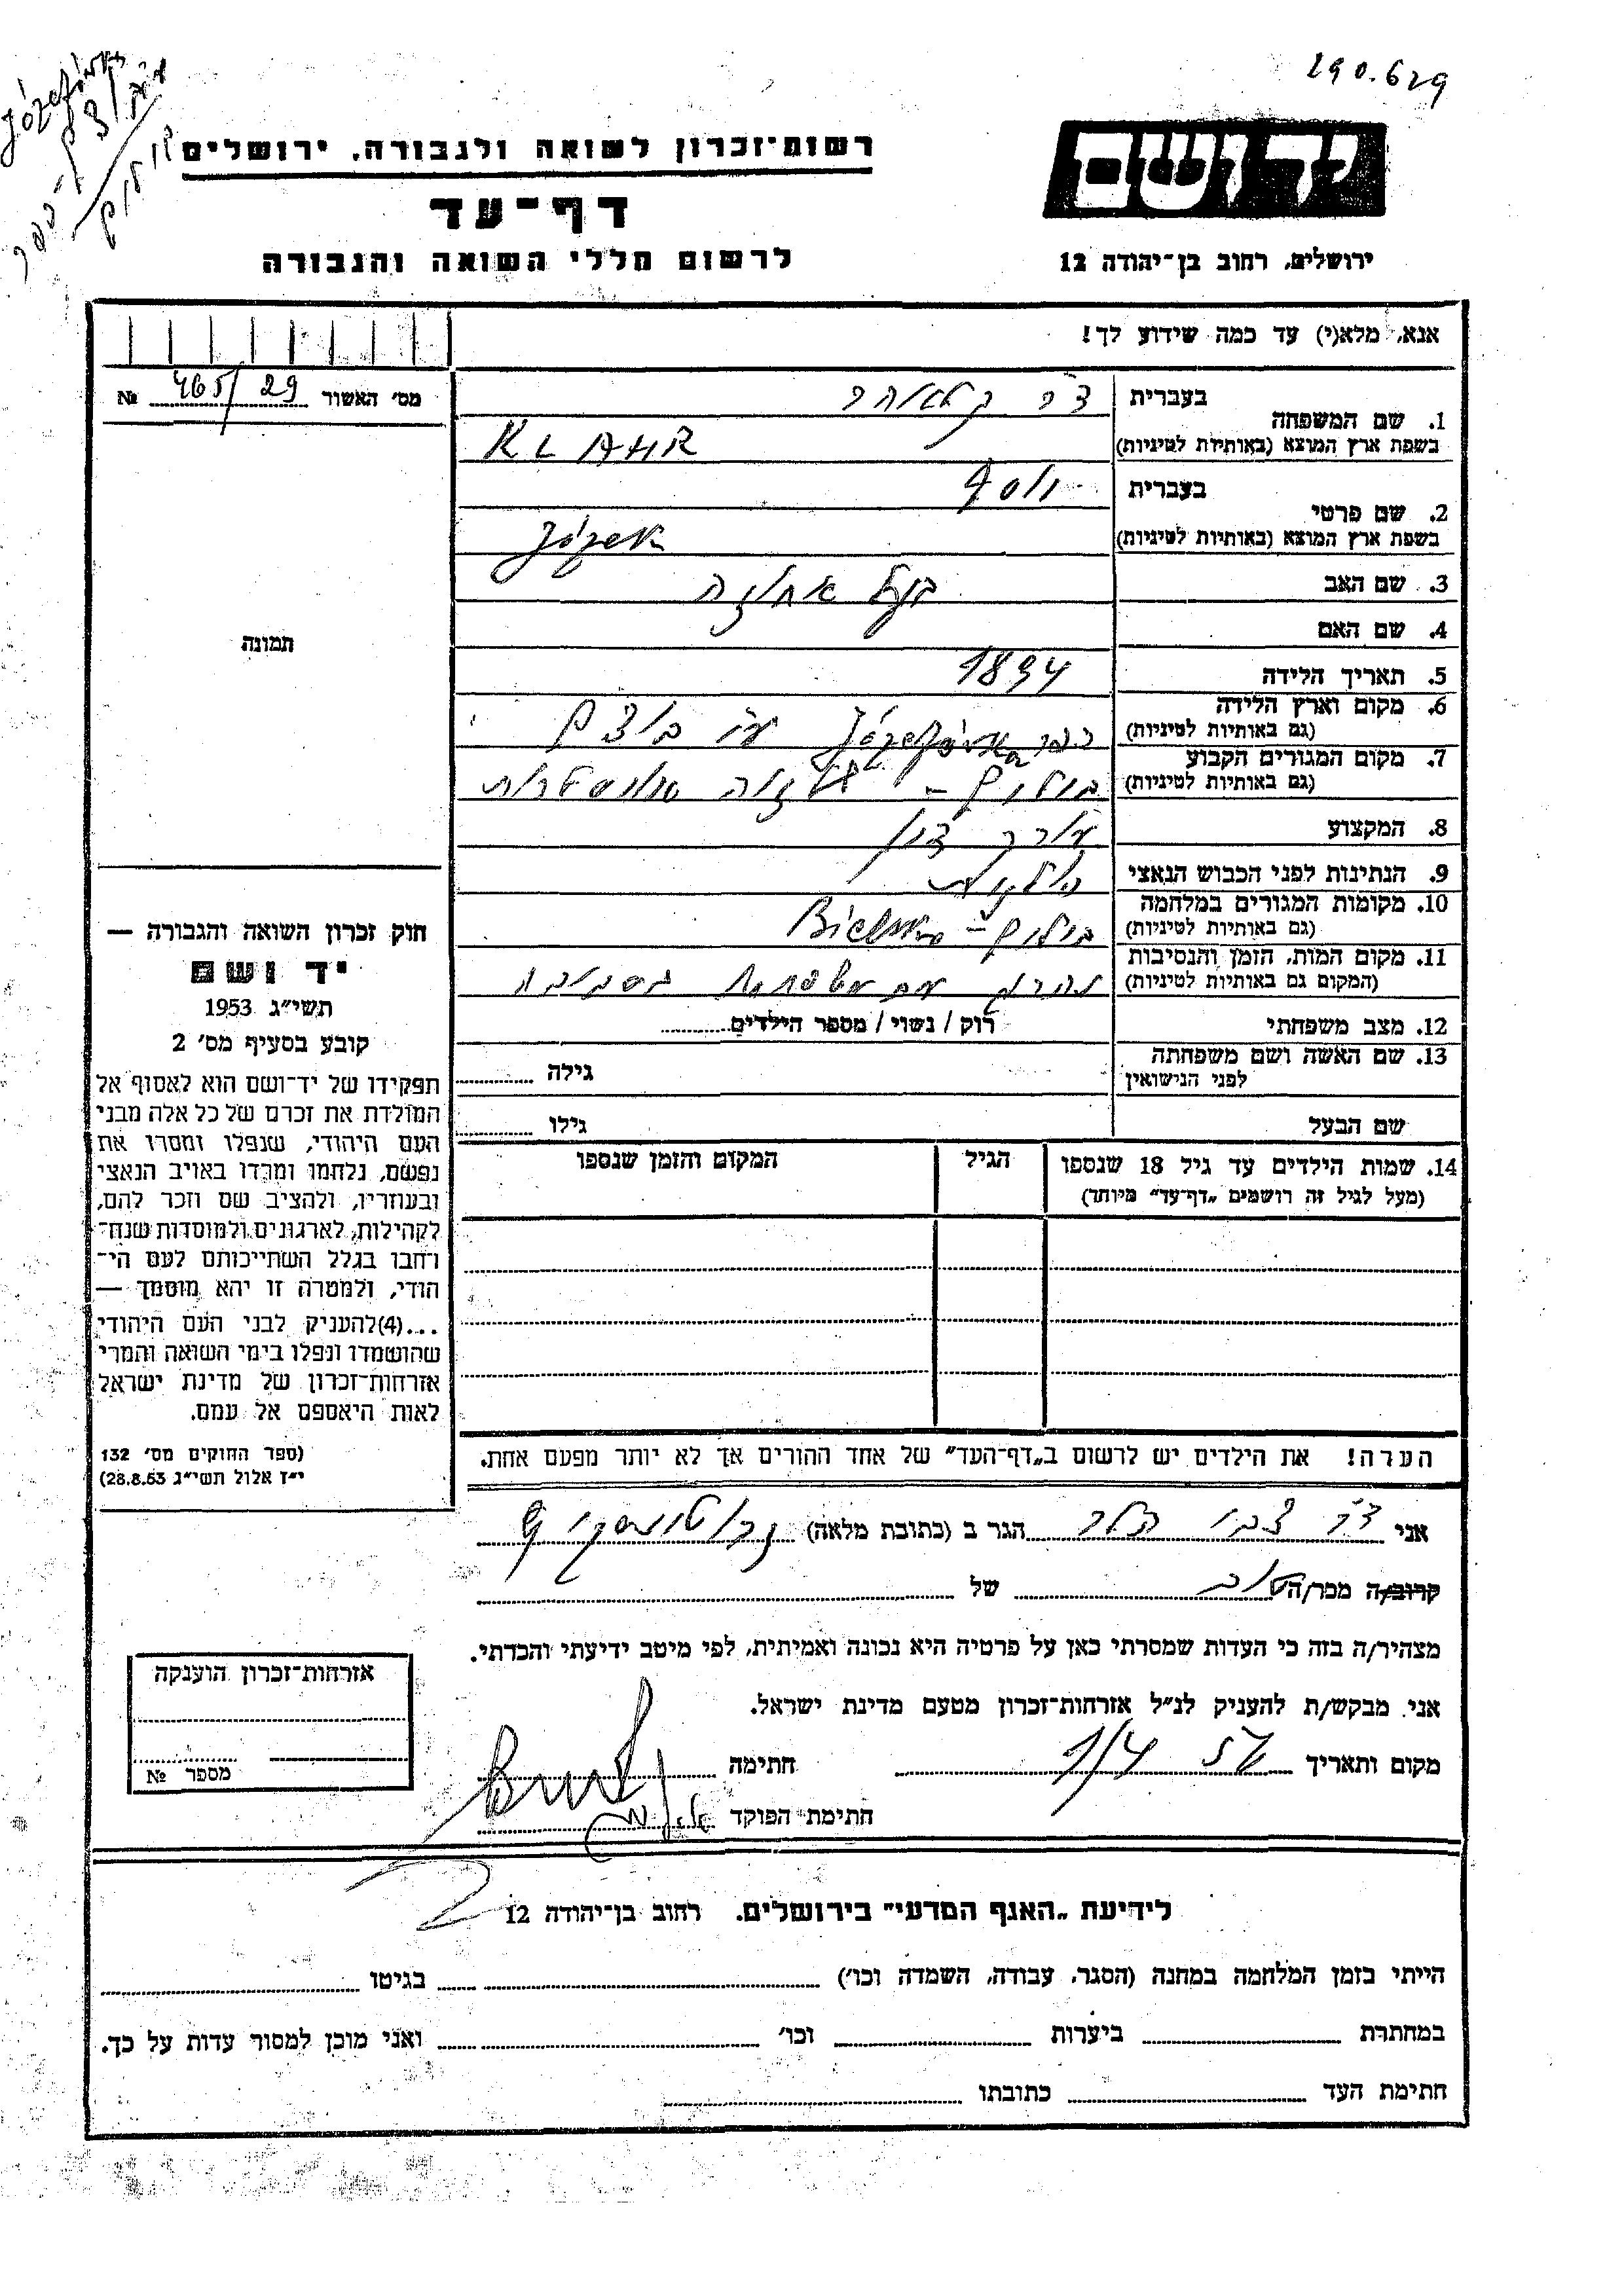 290.629
רשות־זכרון לשואה ולגבורה, ירושלים
יד ושם
דף־עד
לרשום חללי השואה והגבורה
ירושלים, רחוב בן־יהודה 12
אנא, מלא(י) עד כמה שידוע לך!
מס׳ האשור 465/29 №
1. שם המשפחה
בעברית ד״ר קלאהר
בשפת ארץ המוצא (באותיות לטיניות) KLAHR
2. שם פרטי
בעברית יוסף
בשפת ארץ המוצא (באותיות לטיניות) Józef
3. שם האב בעל אחוזה
4. שם האם
5. תאריך הלידה 1894
6. מקום וארץ הלידה
(גם באותיות לטיניות) כפר
7. מקום המגורים הקבוע
(גם באותיות לטיניות)
8. המקצוע עורך דין
9. הנתינות לפני הכבוש הנאצי
10. מקומות המגורים במלחמה
(גם באותיות לטיניות)
11. מקום המות, הזמן והנסיבות
(המקום גם באותיות לטיניות) נהרג עם משפחתו
12. מצב משפחתי רוק / נשוי / מספר הילדים
13. שם האשה ושם משפחתה
לפני הנישואין גילה
שם הבעל גילו
תמונה
14. שמות הילדים עד גיל 18 שנספו הגיל המקום והזמן שנספו
(מעל לגיל זה רושמים „דף־עד״ מיוחד)
הערה! את הילדים יש לרשום ב„דף־העד״ של אחד ההורים אך לא יותר מפעם אחת.
חוק זכרון השואה והגבורה —
יד ושם
תשי״ג 1953
קובע בסעיף מס׳ 2
תפקידו של יד־ושם הוא לאסוף אל
המולדת את זכרם של כל אלה מבני
העם היהודי, שנפלו ומסרו את
נפשם, נלחמו ומרדו באויב הנאצי
ובעוזריו, ולהציב שם וזכר להם,
לקהילות, לארגונים ולמוסדות שנח־
רחבו בגלל השתייכותם לעם הי־
הודי, ולמטרה זו יהא מוסמך —
...(4)להעניק לבני העם היהודי
שהושמדו ונפלו בימי השואה והמרי
אזרחות־זכרון של מדינת ישראל
לאות היאספם אל עמם.
(ספר החוקים מס׳ 132
י״ז אלול תשי״ג 28.8.53)
אני ד״ר צבי הלר הגר ב (כתובת מלאה)
קרוב/ה מכר/ה טוב של
מצהיר/ה בזה כי העדות שמסרתי כאן על פרטיה היא נכונה ואמיתית, לפי מיטב ידיעתי והכרתי.
אני מבקש/ת להעניק לנ״ל אזרחות־זכרון מטעם מדינת ישראל.
מקום ותאריך 1/4 חתימה
חתימת הפוקד
אזרחות־זכרון הוענקה
מספר №
לידיעת „האגף המדעי״ בירושלים. רחוב בן־יהודה 12
הייתי בזמן המלחמה במחנה (הסגר, עבודה, השמדה וכו׳) בגיטו
במחתרת ביערות וכו׳ ואני מוכן למסור עדות על כך.
חתימת העד כתובתו